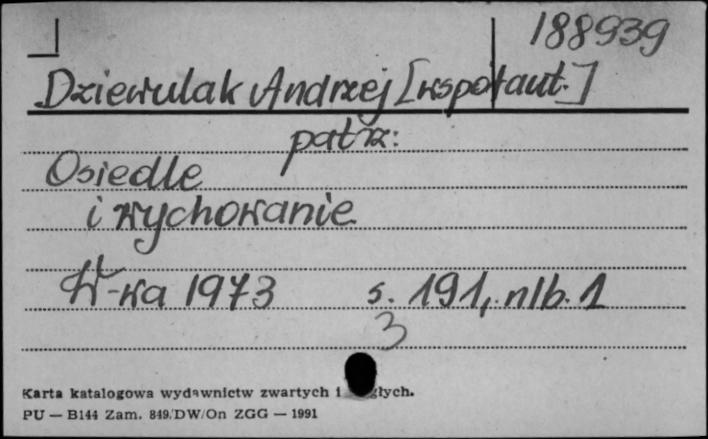 188939
Dziewulak Andrzej [współaut.]
patrz:
Osiedle
i wychowanie
W-wa 1973 s. 191, nlb. 1
3
Karta katalogowa wydawnictw zwartych i
PU — B144 Zam. 849/DW/On ZGG — 1991